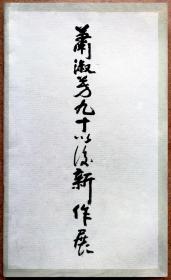 蕭淑芳九十以後新作展